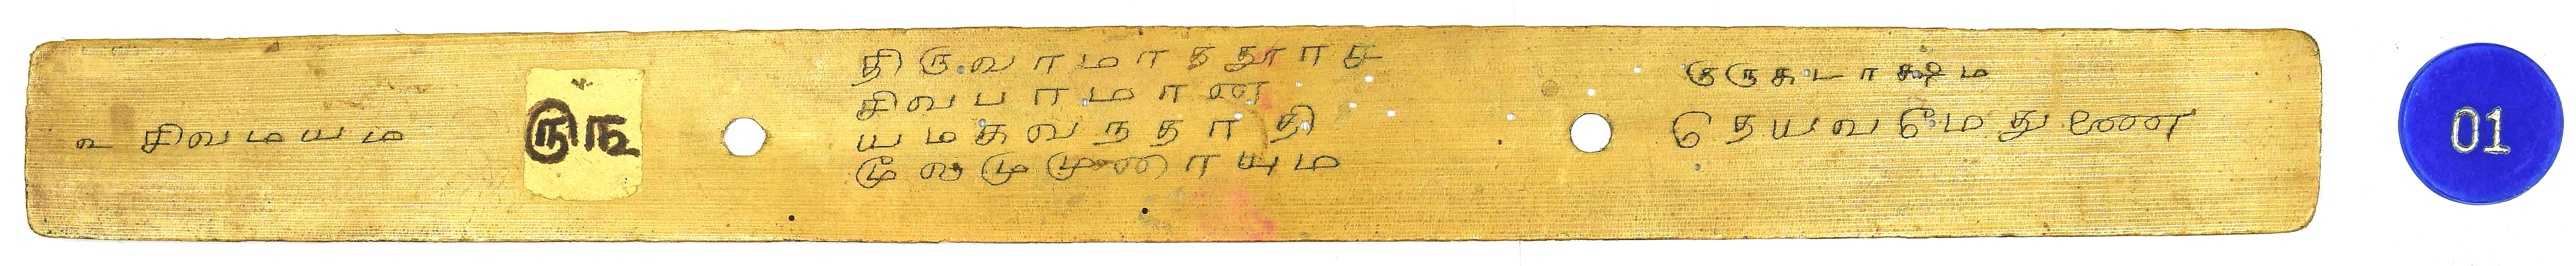 உ சிவமயம
ருந
திருவாமாத்தூரச
சிவபரமான
யமகவநதாதி
மூலமுமுரையும
குருகடாக்ஷம
தெயவமேதுணை
01